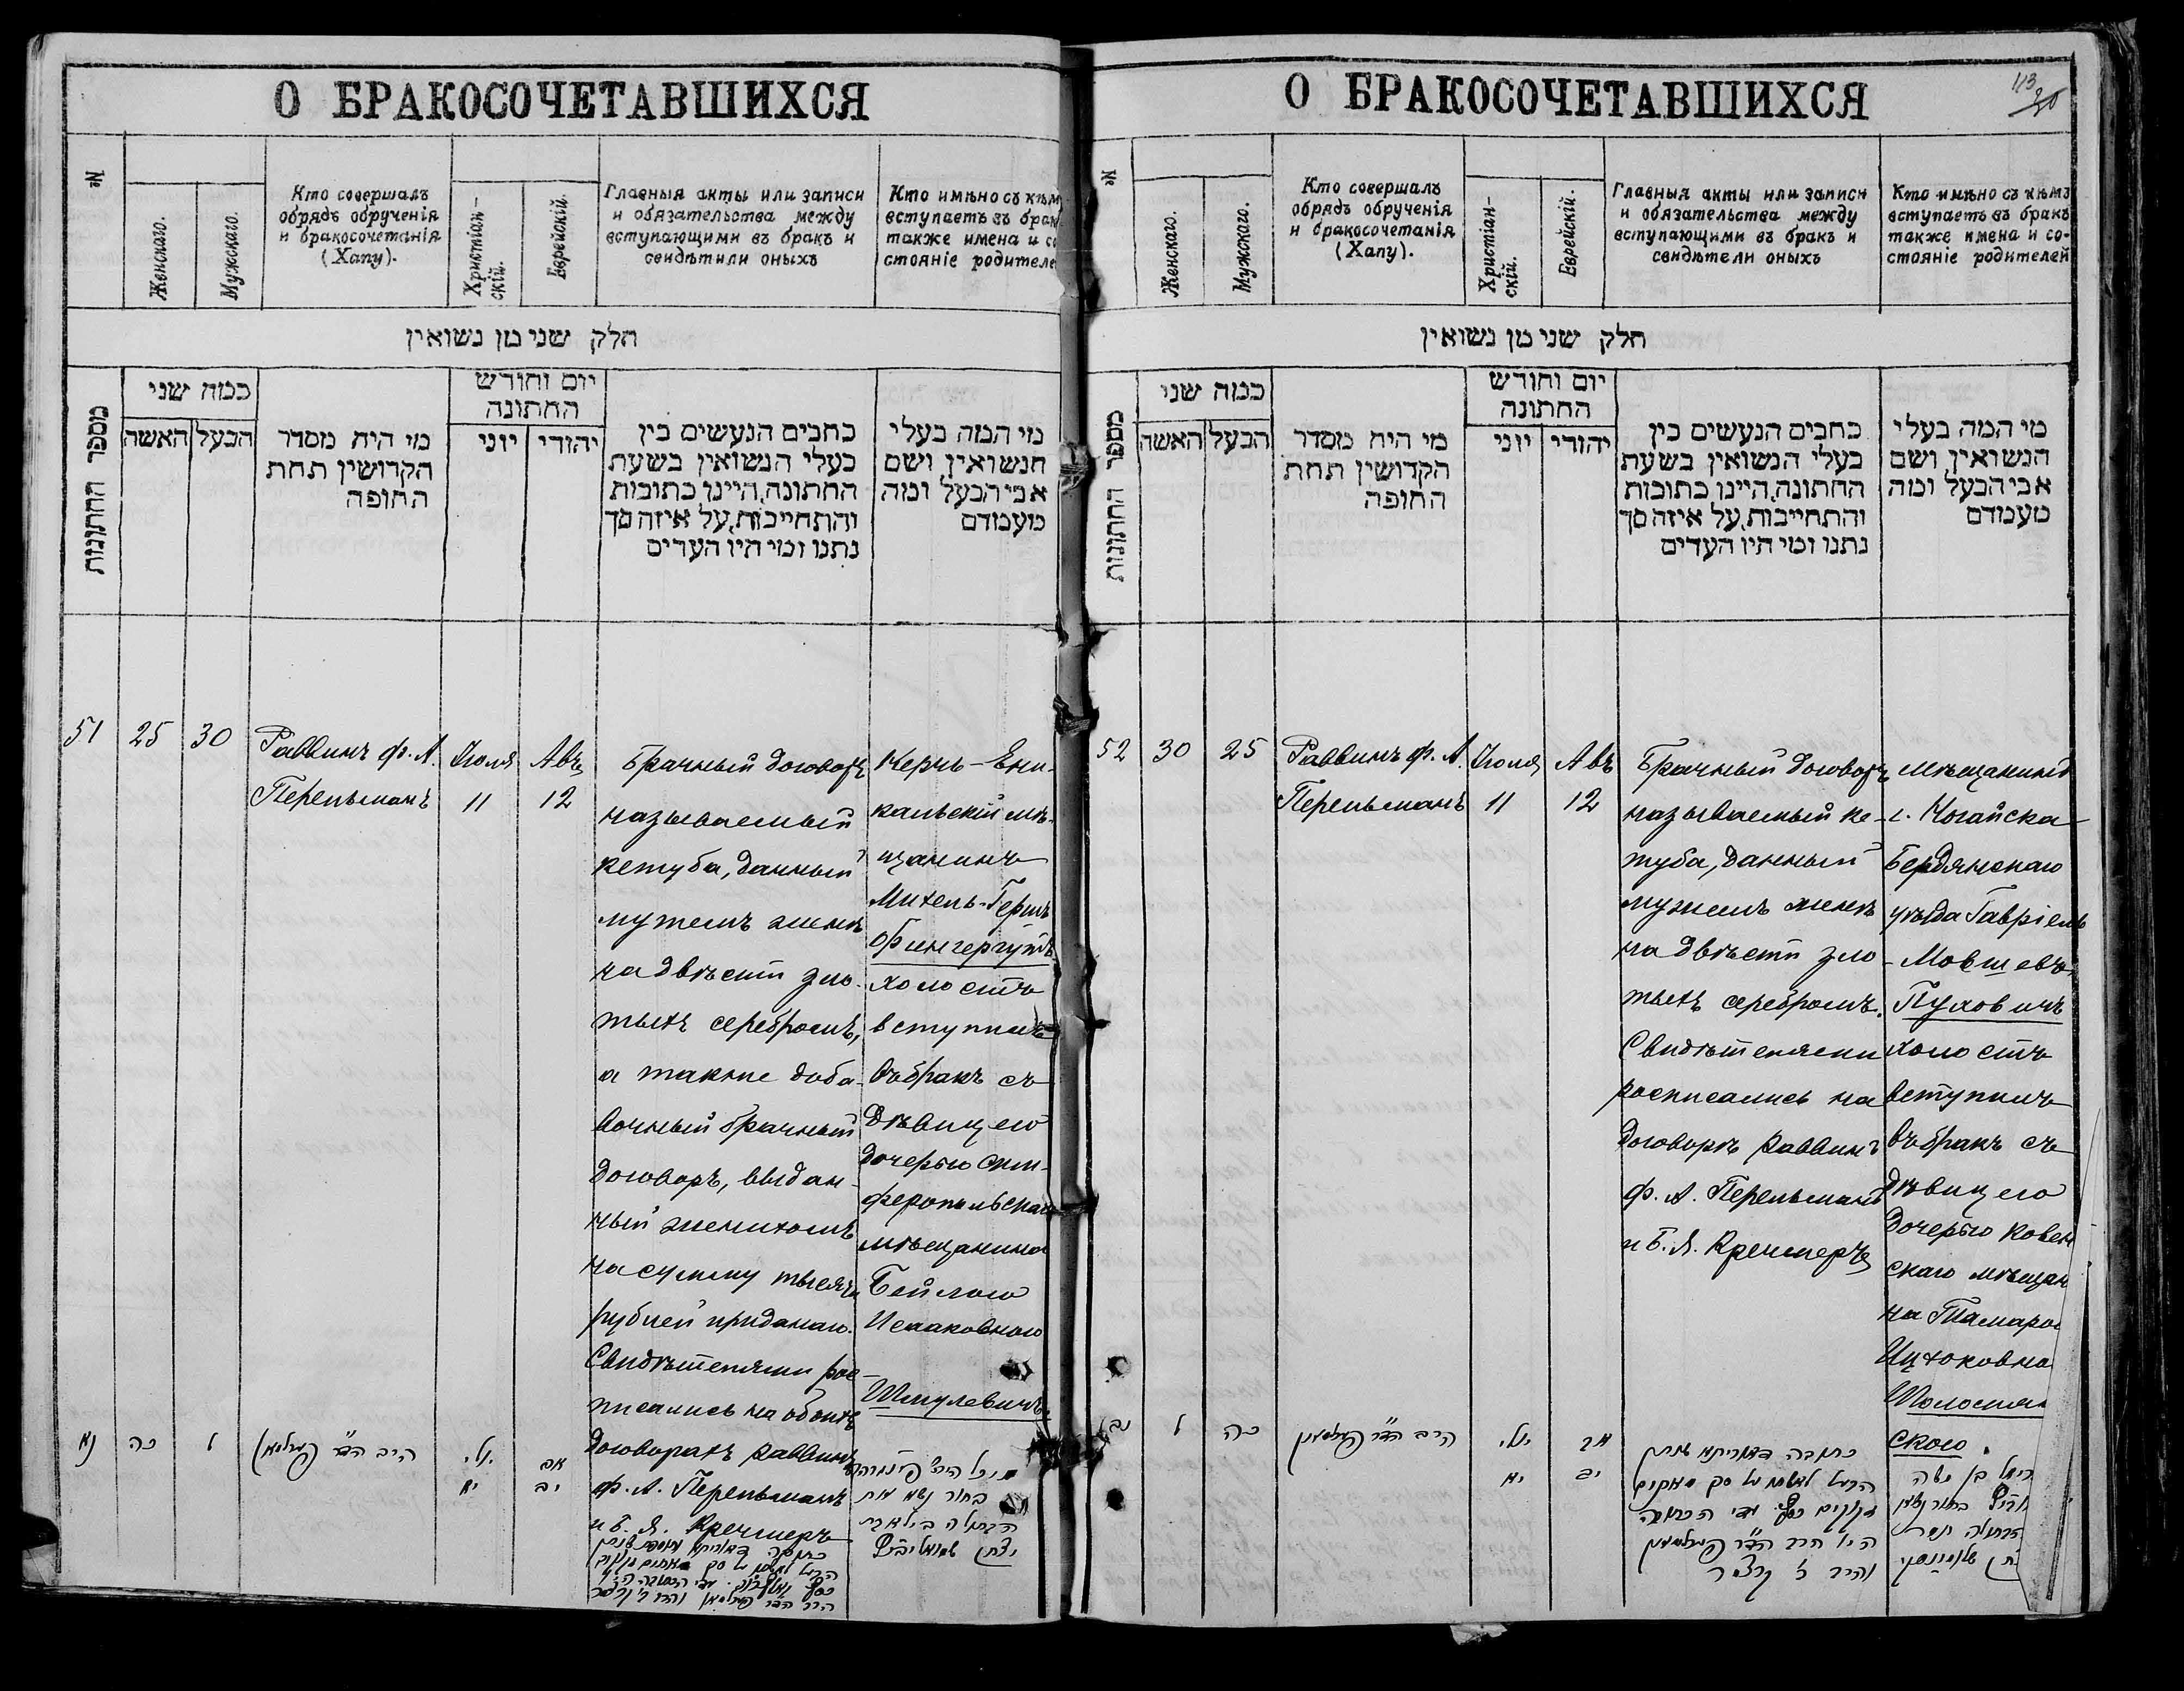 О БРАКОСОЧЕТАВШИХСЯ
№
Женскаго.
Мужскаго.
Кто совершалъ
обрядъ обрученія
и бракосочетанія
(Хапу).
Христіан-
скій.
Еврейскій.
Главныя акты или записи
и обязательства между
вступающими въ бракъ и
свидѣтили оныхъ
Кто имѣно съ кѣм
вступаетъ въ брак
также имена и со
стояніе родителе
חלק שני מן נשואין
מספר החתונות
כמה שני
האשה
הבעל
מי היה מסדר
הקדושין תחת
החופה
יום וחודש
החתונה
יוני
יהודי
כתבים הנעשים בין
בעלי הנשואין בשעת
החתונה,היינו כתובות
והתחייבות,על איזה סך
נתנו ומי היו העדים
מי המה בעלי
הנשואין ושם
אבי הבעל ומה
מעמדם
51
25
30
Раввинъ Ф. А.
Перельманъ
Іюля
11
Авъ
12
Брачный договоръ
называемый
кетуба, данный
мужемъ женѣ
на двѣсти зло-
тыхъ серебромъ,
а также доба-
вочный брачный
договоръ, выдан-
ный женихомъ
на сумму тысячи
рублей приданаго.
Свидѣтелями рос-
писались на обоихъ
договорахъ раввинъ
Ф. А. Перельманъ
и Б. Я. Кречмеръ
Керчь-Ени-
кальскій мѣ-
щанинъ
Михель-Гершъ
Фингергутъ
холостъ
вступилъ
въ бракъ съ
дѣвицею
дочерью Сим-
феропольскаго
мѣщанина
Бейлою
Исааковною
Шмулевичъ.
נא
כה
ל
הרב הד״ר פערלמאן
יולי
יא
אב
יב
בחור נשא את
הבתולה ביילא בת
יצחק שמואלוביץ
О БРАКОСОЧЕТАВШИХСЯ
113
20
№
Женскаго.
Мужскаго.
Кто совершалъ
обрядъ обрученія
и бракосочетанія
(Хапу).
Христіан-
скій.
Еврейскій.
Главныя акты или записи
и обязательства между
вступающими въ бракъ и
свидѣтели оныхъ
Кто имѣно съ кѣмъ
вступаетъ въ бракъ
также имена и со-
стояніе родителей
חלק שני מן נשואין
מספר החתונות
כמה שני
האשה
הבעל
מי היה מסדר
הקדושין תחת
החופה
יום וחודש
החתונה
יוני
יהודי
כתבים הנעשים בין
בעלי הנשואין בשעת
החתונה,היינו כתובות
והתחייבות,על איזה סך
נתנו ומי היו העדים
מי המה בעלי
הנשואין ושם
אבי הבעל ומה
מעמדם
52
30
25
Раввинъ Ф. А.
Перельманъ
Іюля
11
Авъ
12
Брачный договоръ
называемый ке-
туба, данный
мужемъ женѣ
на двѣсти зло-
тыхъ серебромъ.
Свидѣтелями
росписались на
договорѣ раввинъ
Ф. А. Перельманъ
и Б. Я. Кречмеръ
Мѣщанинъ
г. Ногайска
Бердянскаго
уѣзда Гавріель
Мовшевъ
Пуховичъ
холостъ
вступилъ
въ бракъ съ
дѣвицею
дочерью Ковен
скаго мѣщан
на Тамарою
Ицхоковна
Шолосмян
скою.
נב
ל
כה
הרב הד״ר פערלמאן
יולי
יא
אב
יב
כתובה דאוריתא שנתן
הבעל לאשתו על סך מאתים
זקוקים כסף. עדי הכתובה
היו הרב הד״ר פערלמאן